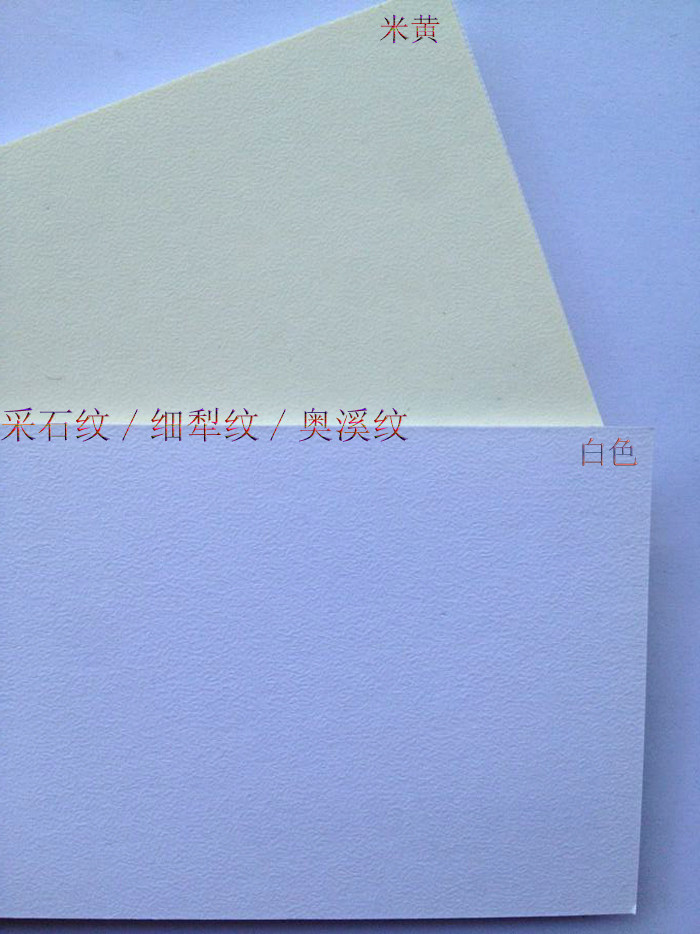 米黄
采石纹/细犁纹/奥溪纹
白色